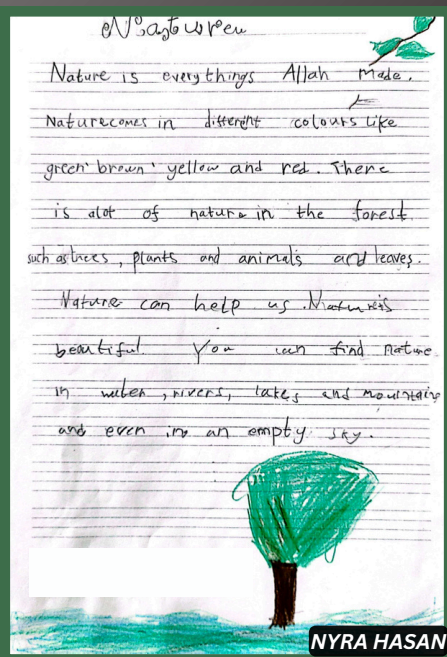 Nature is everythings Allah made.
Naturecomes in different colours like
green, brown, yellow and red. There
is alot of nature in the forest
such as trees, plants and animals and leaves.
Nature can help us. Nature is
beautiful You can find nature
in water, rivers, lakes and mountains
and even in an empty sky.
NYRA HASAN